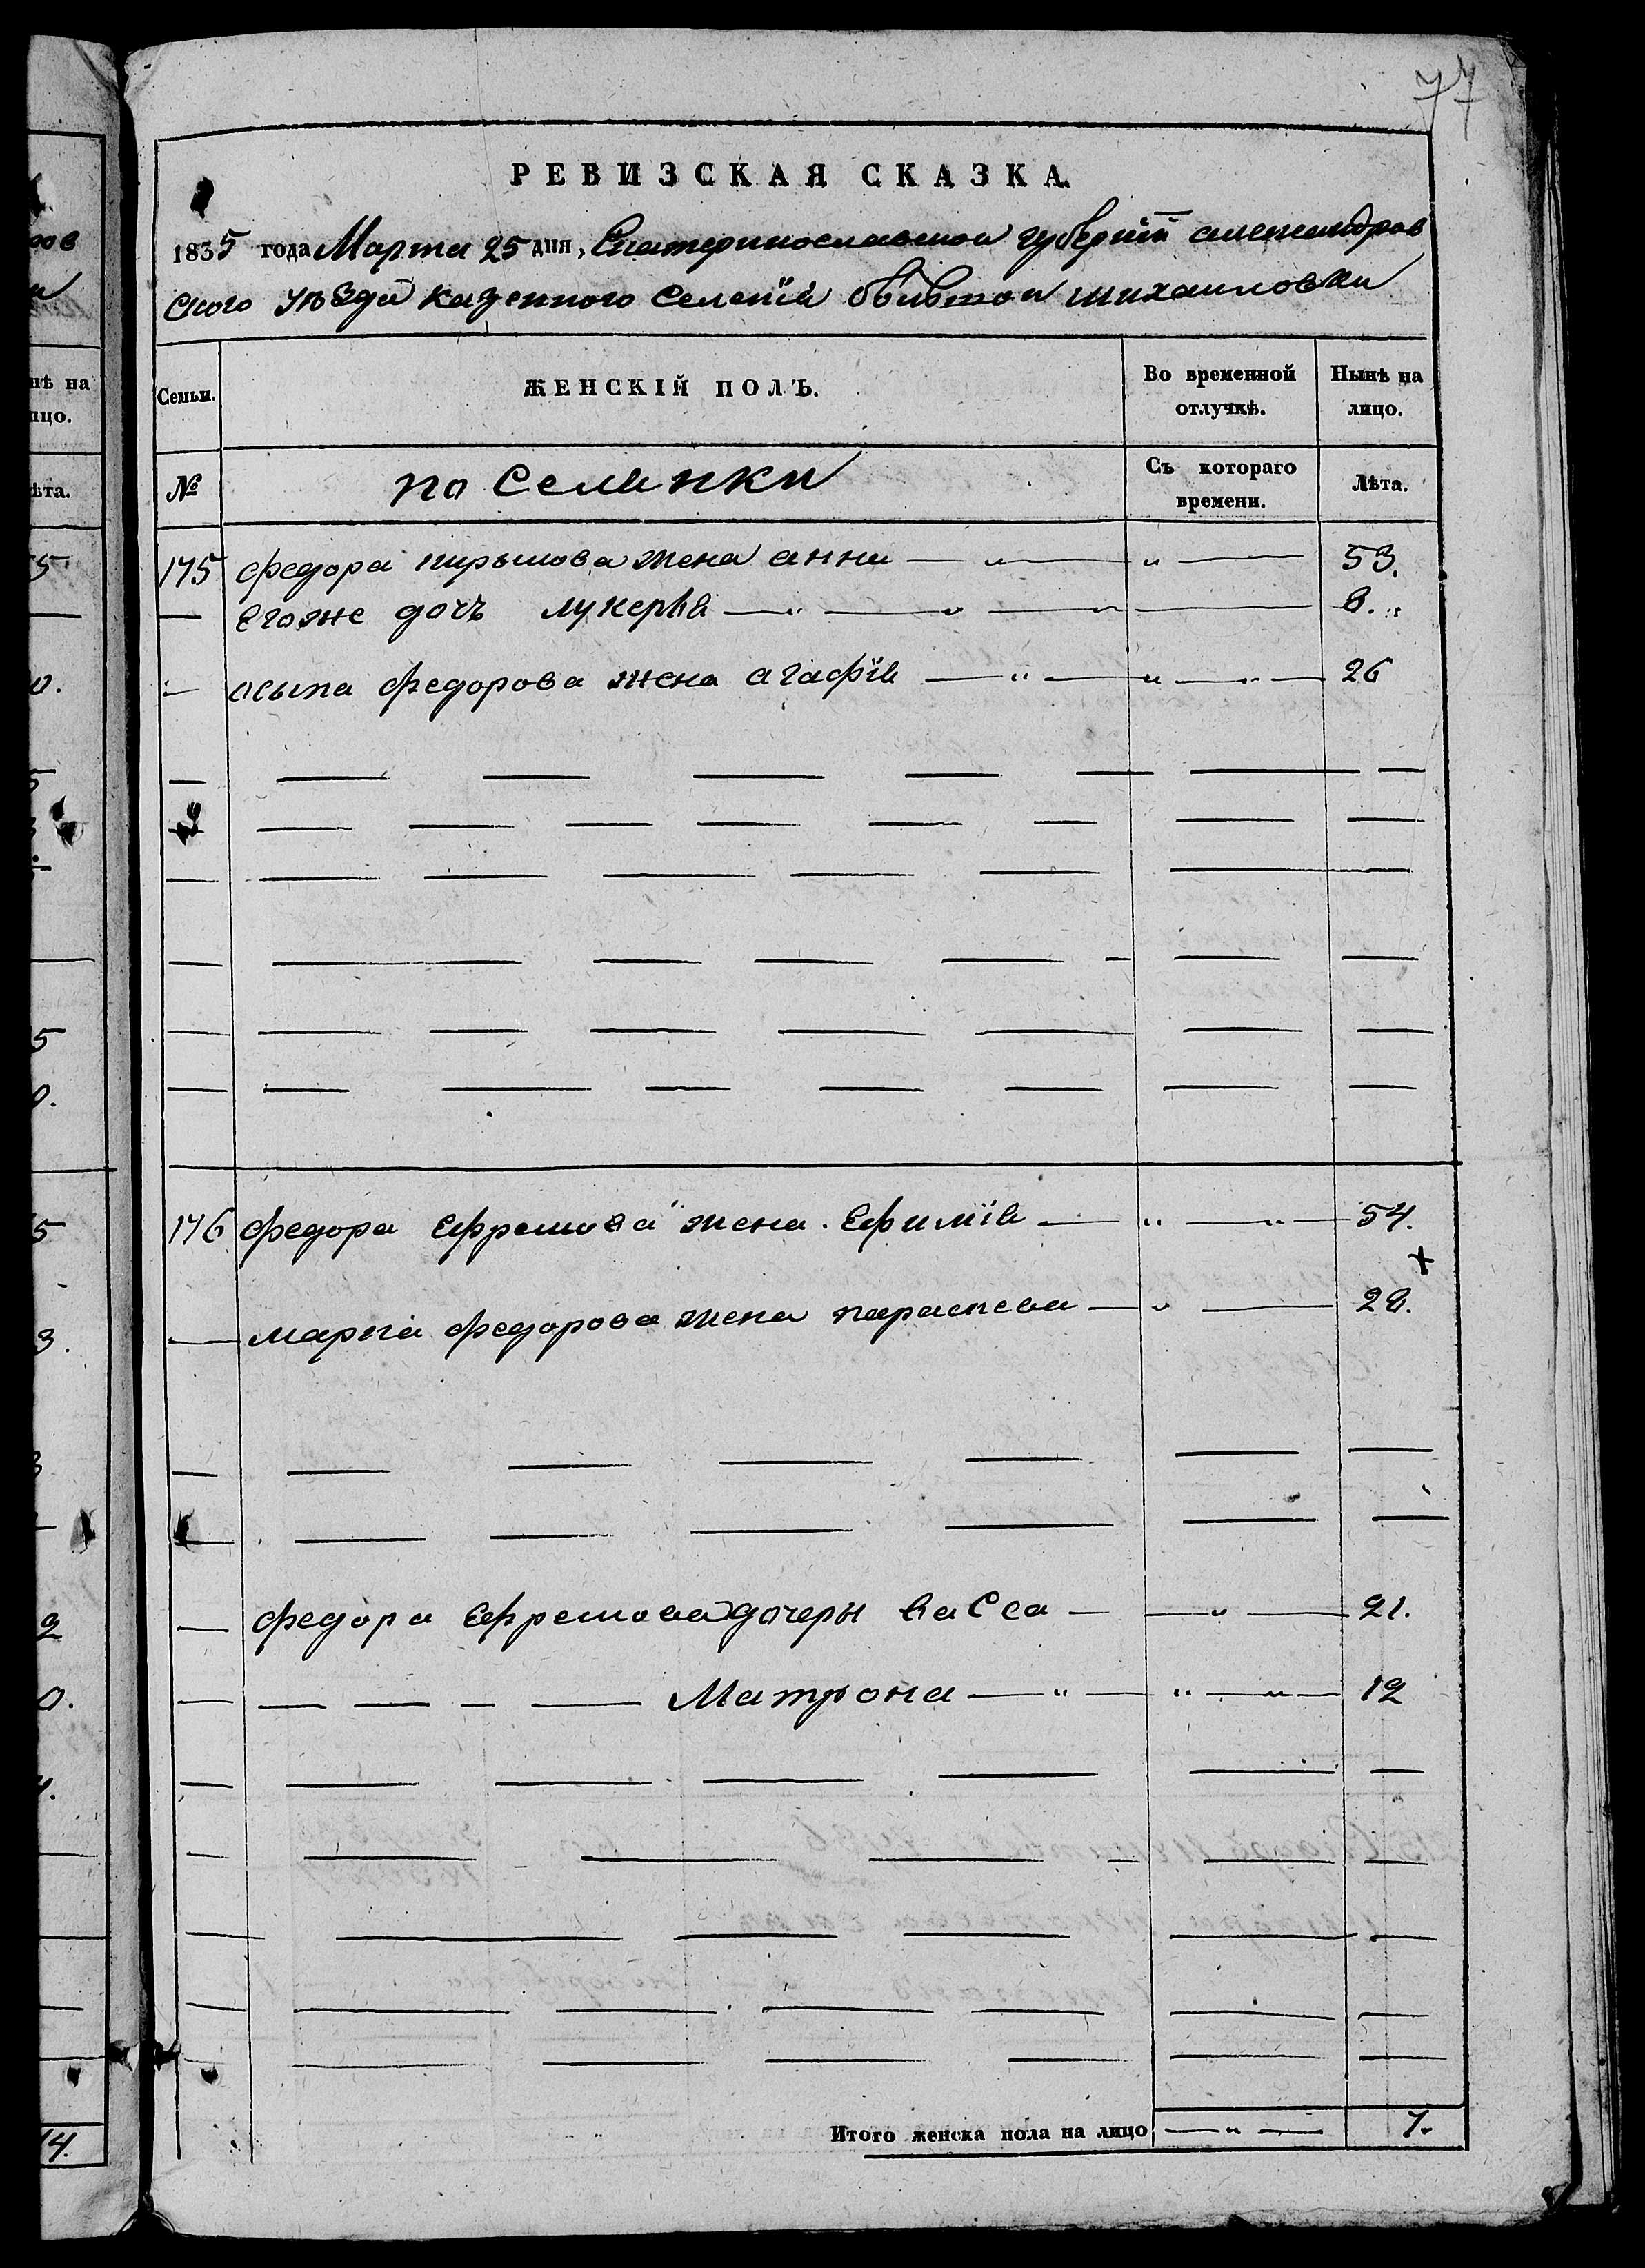 77
РЕВИЗСКАЯ СКАЗКА.
1835 года Марта 25 дня, Екатеринославской губернїи александров
ского уѣзда казенного Селенїя большой михайловки
Семьи.
ЖЕНСКІЙ ПОЛЪ.
Во временной отлучкѣ.
Нынѣ на лицо.
№
поселянки
Съ котораго времени.
Лѣта.
175 федора жена анна — " — " — 53.
его же дочь лукерья — " — " — " — 8.
осыпа федорова жена агафїя — " — " — " — 26
176 федора ефремова жена. Ефимїя — " — " — 54.
х
марка федорова жена параскева — " — 28.
федора ефремова дочеры васса — — " — 21.
— — — — Матрона — " — " — " — 12
Итого женска пола на лицо — " — 7.
нѣ на
лицо.
лѣта.
14.